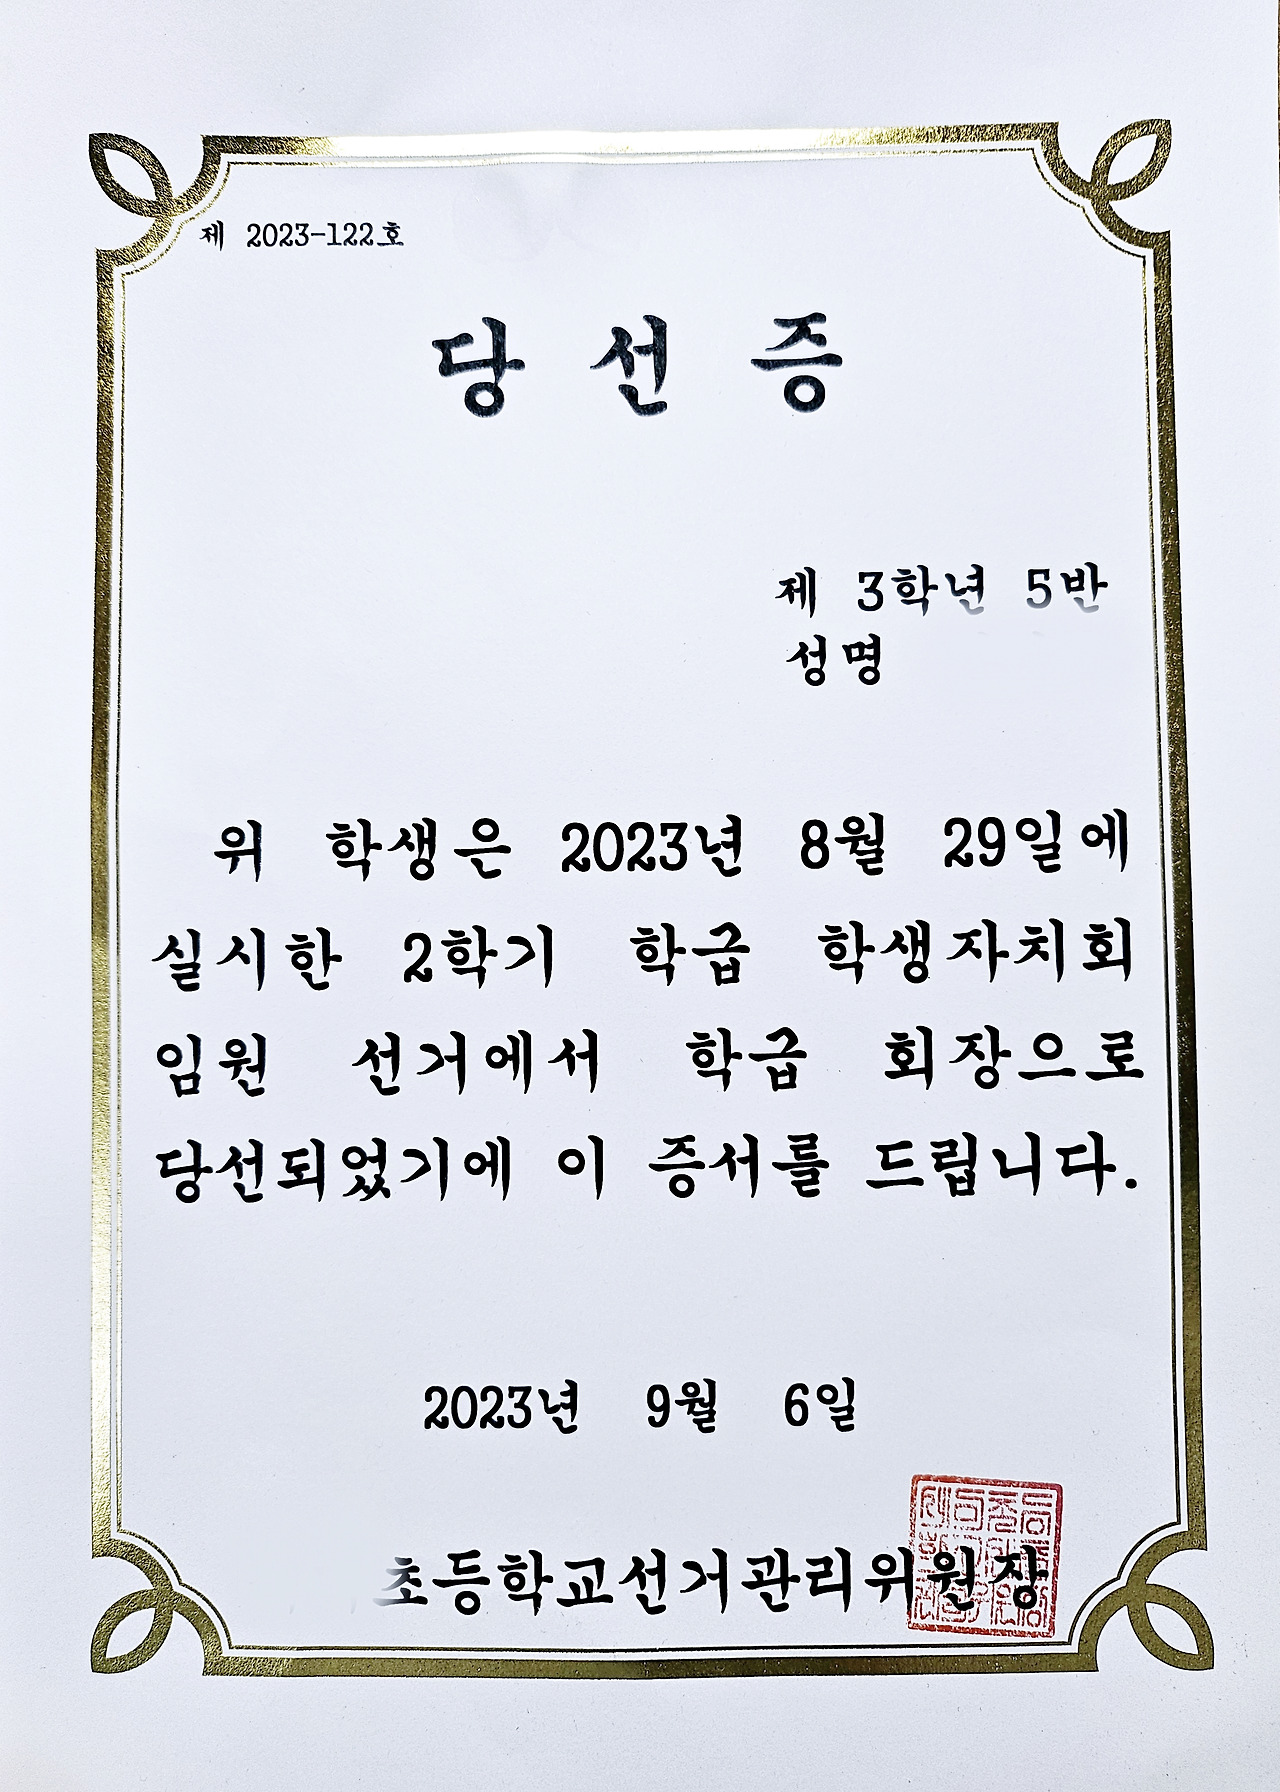 제 2023-122호
당 선 증
제 3학년 5반
성명
위 학생은 2023년 8월 29일에
실시한 2학기 학급 학생자치회
임원 선거에서 학급 회장으로
당선되었기에 이 증서를 드립니다.
2023년 9월 6일
초등학교선거관리위원장